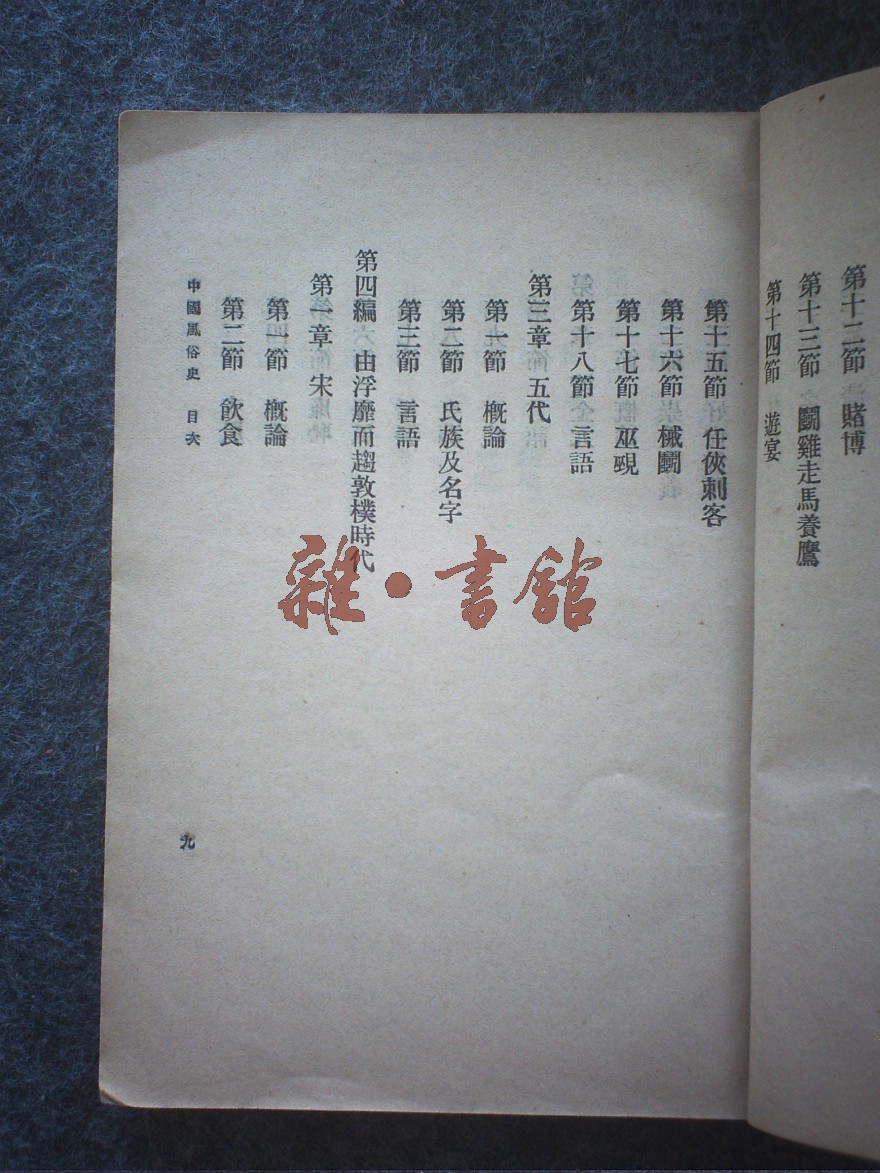 第十二節 賭博
第十三節 鬭雞走馬養鷹
第十四節 遊宴
第十五節 任俠刺客
第十六節 械鬭
第十七節 巫覡
第十八節 言語
第三章 五代
第一節 概論
第二節 氏族及名字
第三節 言語
第四編 由浮靡而趨敦樸時代
第一章 宋
第一節 概論
第二節 飲食
中國風俗史 目次
九
雜·書館